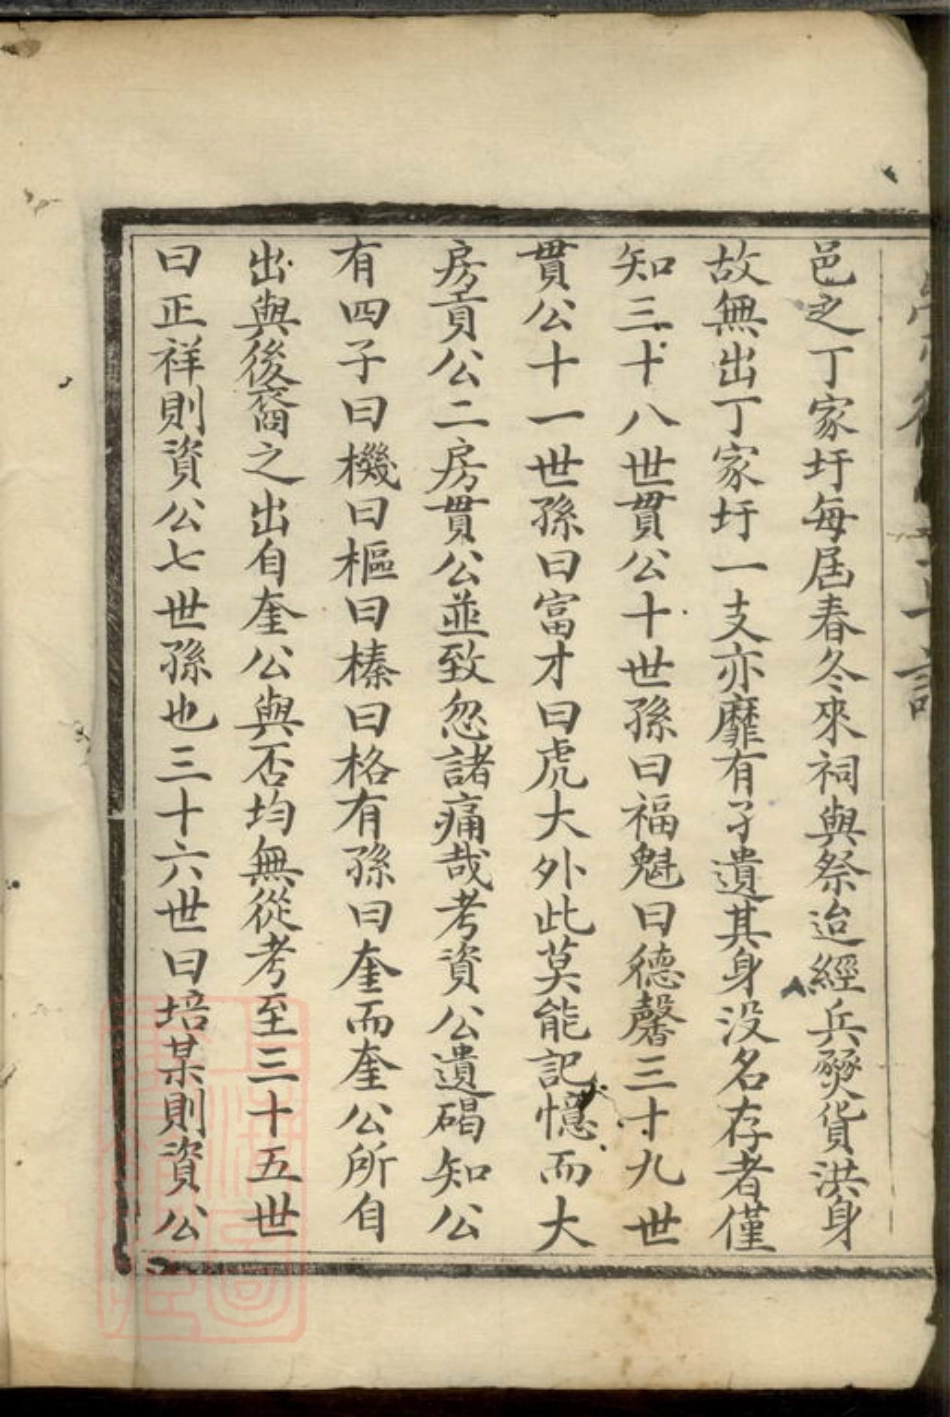 邑之丁家圩每居春冬來祠與祭迨經兵燹貨洪身
故無出丁家圩一支亦靡有孑遺其身没名存者僅
知三十八世貫公十世孫曰福魁曰德馨三十九世
貫公十一世孫曰富才曰虎大外此莫能記憶而大
房貢公二房貫公並致忽諸痛哉考資公遺碣知公
有四子曰機曰樞曰榛曰格有孫曰奎而奎公所自
出與後裔之出自奎公與否均無從考至三十五世
曰正祥則資公七世孫也三十六世曰培某則資公